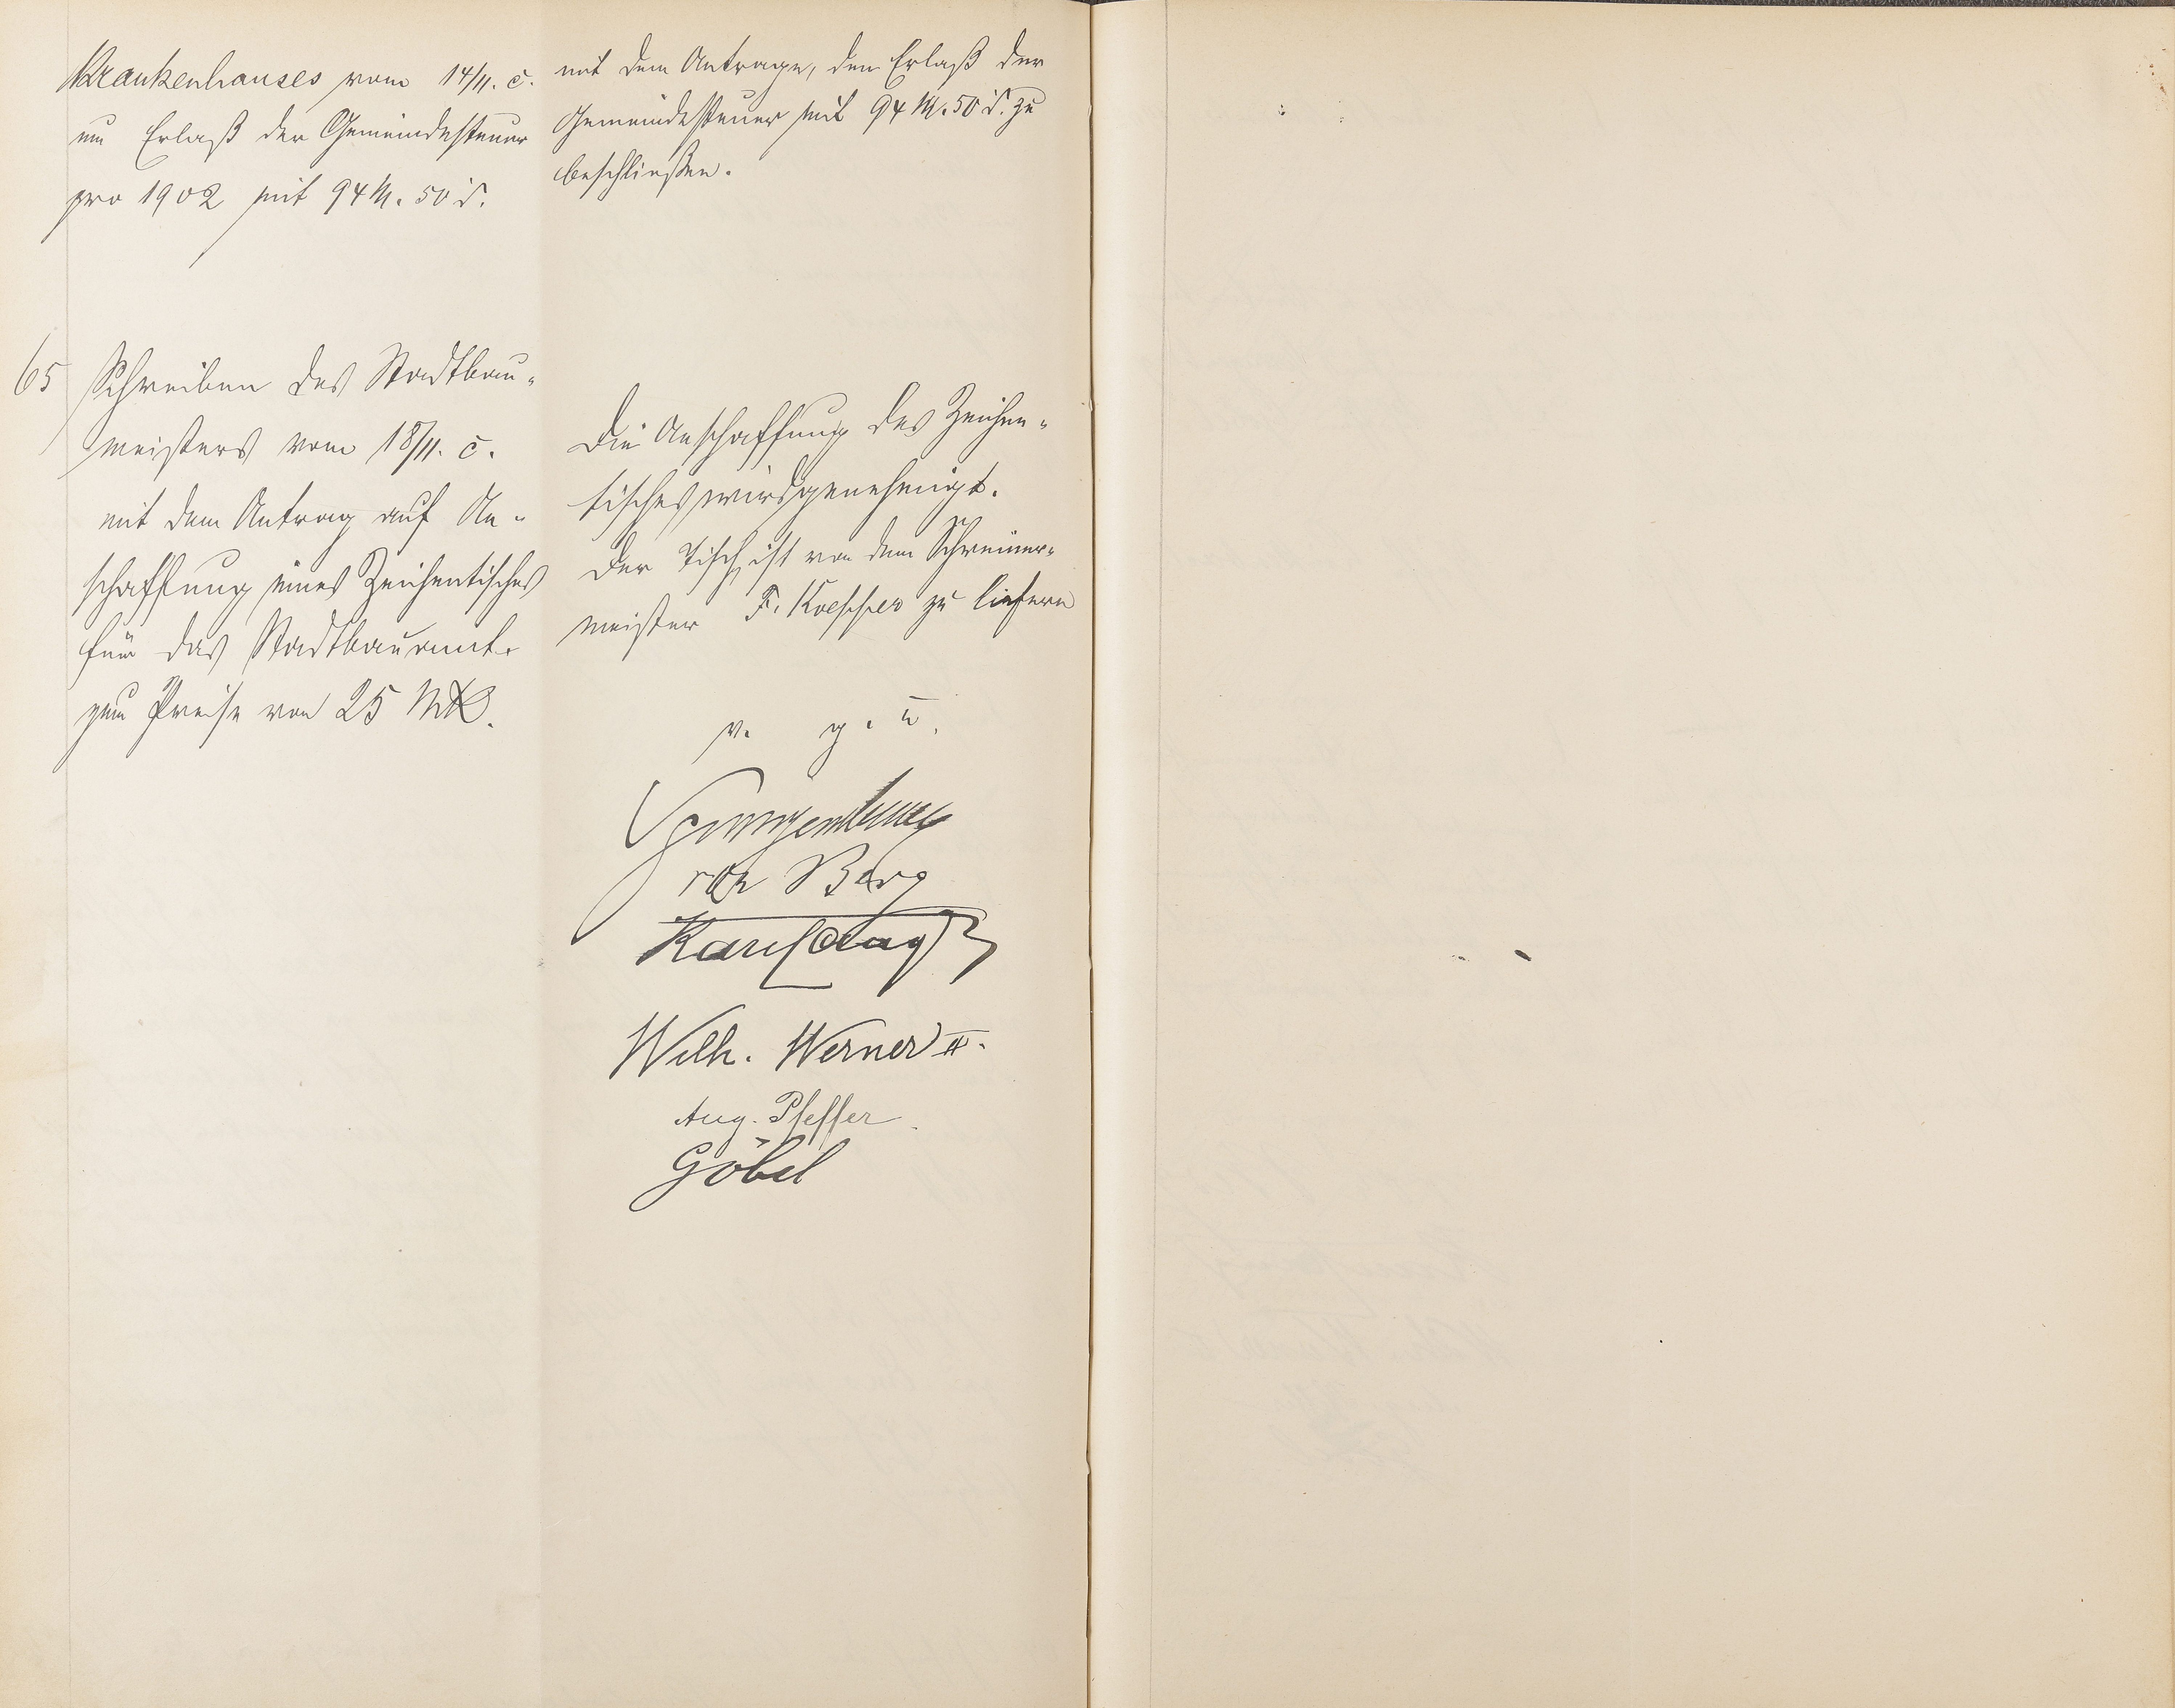 Krankenhauses vom 14/11. c.
um Erlaß der Gemeindesteuer
pro 1902 mit 94 M. 50 d.
mit dem Antrage, den Erlaß der
Gemeindesteuer mit 94 M. 50 d. zu
beschließen.
65 Schreiben des Stadtbau-
meisters vom 18/11. c.
mit dem Antrag auf An-
schaffung eines Zeichentisches
für das Stadtbauamt.
zum Preise von 25 Mk.
Die Anschaffung des Zeichen-
tisches wird genehmigt.
Der Tisch ist von dem Schreiner-
meister F. zu liefern
v. g. u.
von Berg
Wilh. Werner II.
Aug. Pfeffer.
Göbel